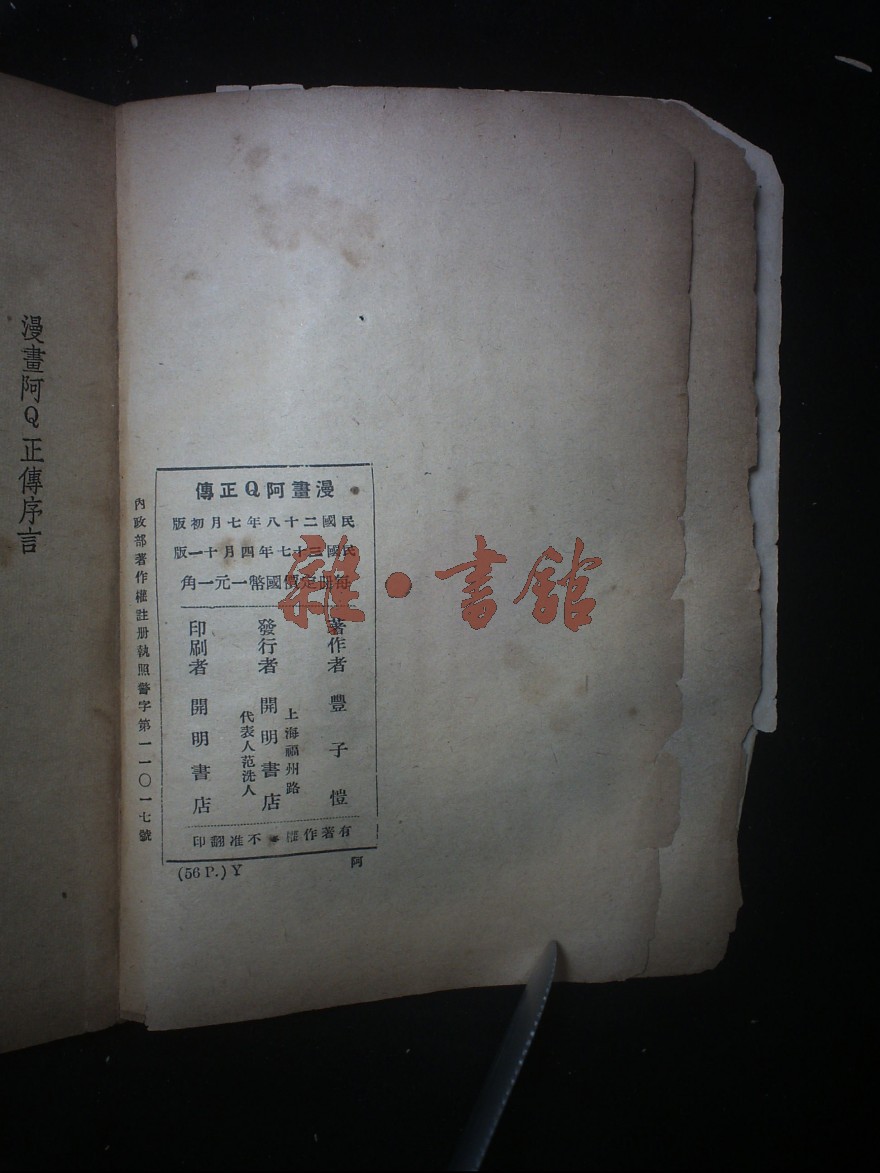 漫畫阿Q正傳
民國二十八年七月初版
民國三十七年四月十一版
每冊定價國幣一元一角
著作者 豐子愷
上海福州路
發行者 開明書店
代表人范洗人
印刷者 開明書店
有著作權 不准翻印
內政部著作權註册執照警字第一一〇一七號
(56 P.) Y
阿
漫畫阿Q正傳序言
雜·書館